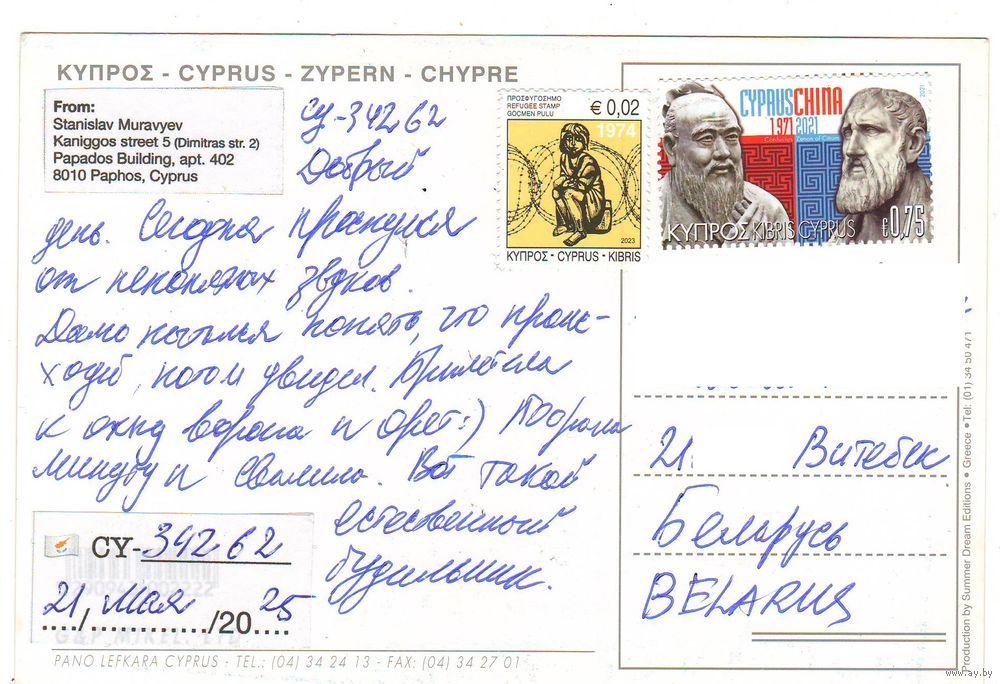 ΚΥΠΡΟΣ - CYPRUS - ZYPERN - CHYPRE
From:
Stanislav Muravyev
Kaniggos street 5 (Dimitras str. 2)
Papados Building, apt. 402
8010 Paphos, Cyprus
CY-34262
Добрый
день. Сегодня проснулся
от непонятных звуков.
Долго пытался понять, что проис-
ходит, потом увидел. Прилетела
к окну ворона и орёт:) Поорала
минуту и свалила. Вот такой
естественный
будильник.
CY-34262
21, мая 25
..../............/20....
PANO LEFKARA CYPRUS - TEL.: (04) 34 24 13 - FAX: (04) 34 27 01
ΠΡΟΣΦΥΓΟΣΗΜΟ
REFUGEE STAMP
GÖÇMEN PULU
€ 0,02
1974
2023
ΚΥΠΡΟΣ - CYPRUS - KIBRIS
CYPRUSCHINA
1971 2021
Confucius Zenon of Citium
2021
ΚΥΠΡΟΣ KIBRIS CYPRUS
€0,75
21 Витебск
Беларусь
BELARUS
Production by Summer Dream Editions • Greece • Tel: (01) 34 50 471
www.ay.by